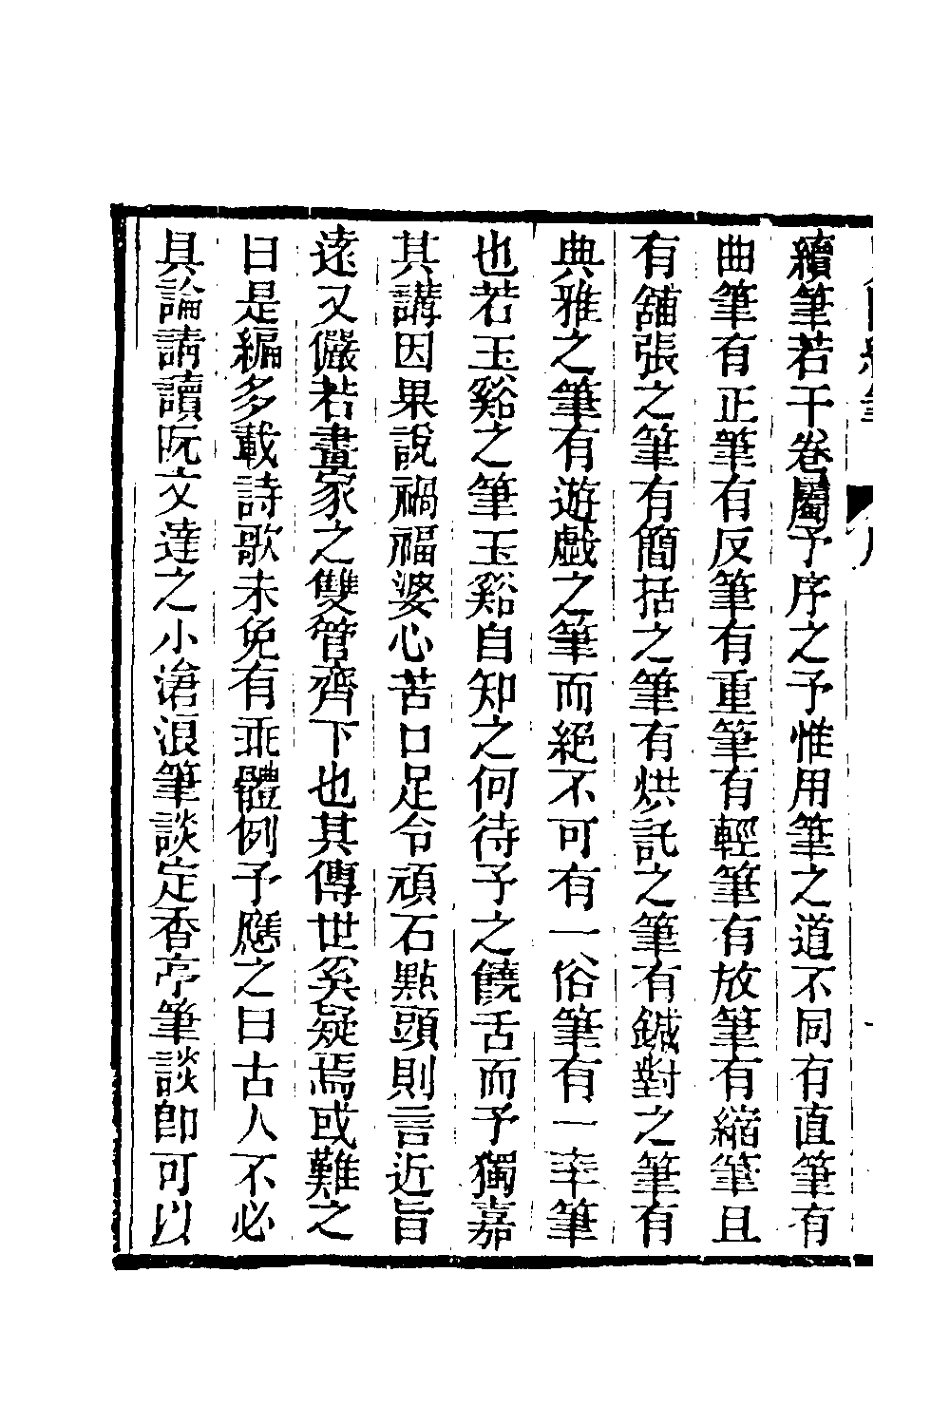 續筆若干卷屬予序之予惟用筆之道不同有直筆有
曲筆有正筆有反筆有重筆有輕筆有放筆有縮筆且
有舖張之筆有簡括之筆有烘託之筆有鍼對之筆有
典雅之筆有遊戲之筆而絕不可有一俗筆有一率筆
也若玉谿之筆玉谿自知之何待予之饒舌而予獨嘉
其講因果說禍福婆心苦口足令頑石點頭則言近旨
遠又儼若畫家之雙管齊下也其傳世奚疑焉或難之
曰是編多載詩歌未免有乖體例予應之曰古人不必
具論請讀阮文達之小滄浪筆談定香亭筆談卽可以